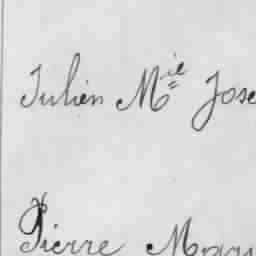 Julien M^ie Jose
Pierre Mari